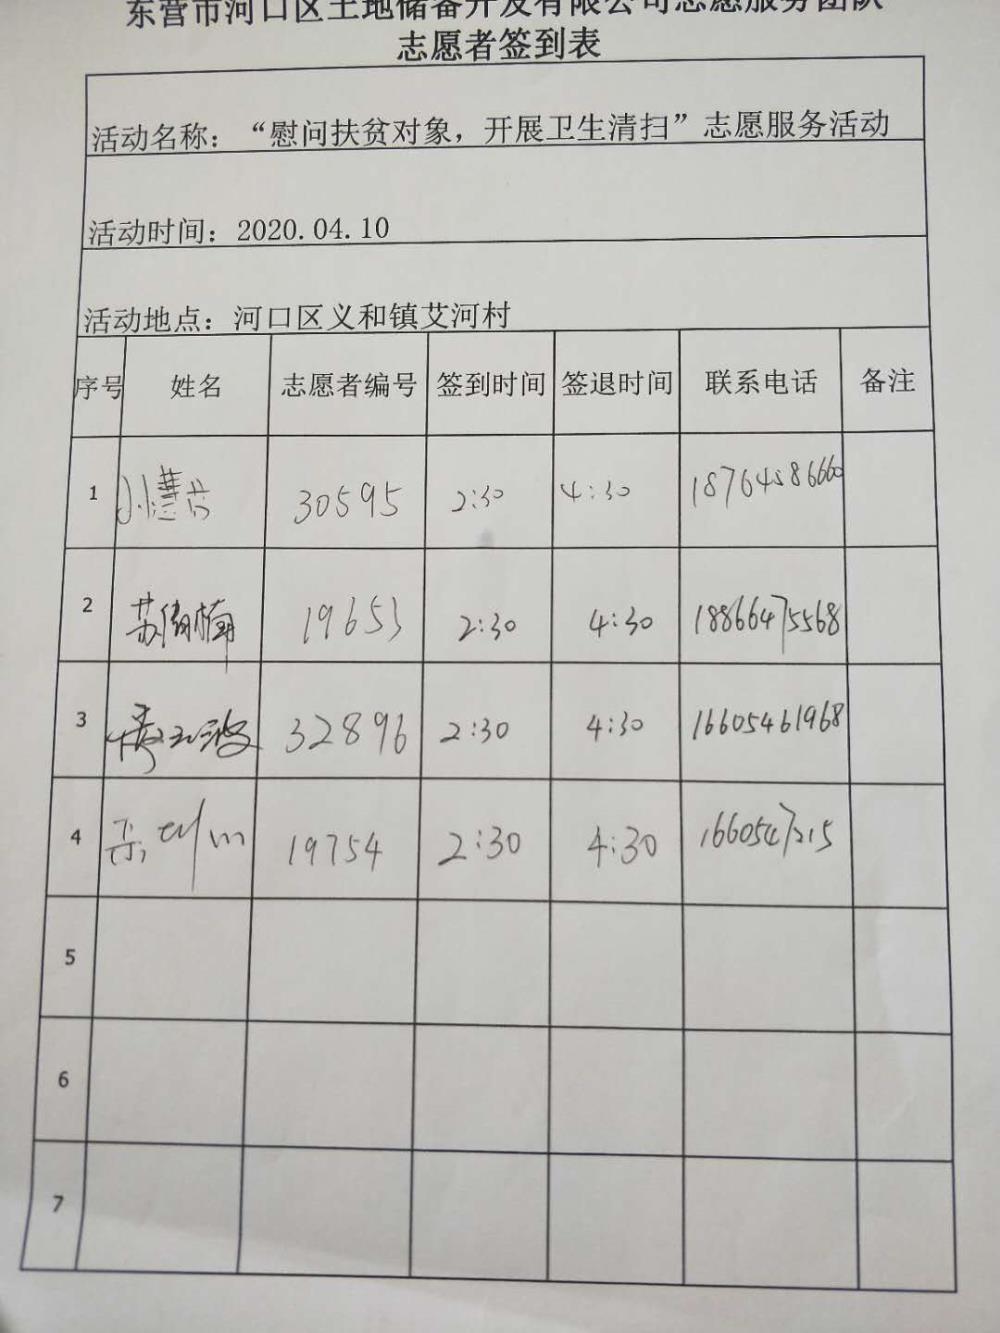 东营市河口区土地储备开发有限公司志愿服务团队
志愿者签到表
活动名称：“慰问扶贫对象，开展卫生清扫”志愿服务活动
活动时间：2020.04.10
活动地点：河口区义和镇艾河村
序号 姓名 志愿者编号 签到时间 签退时间 联系电话 备注
1 30595 2:30 4:30 18764586660
2 19653 2:30 4:30 18866475568
3 32896 2:30 4:30 16605461968
4 19754 2:30 4:30
5
6
7